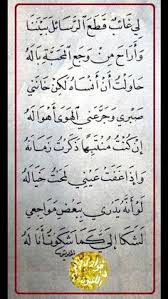 لِي غَائِبٌ قَطَعَ الرَّسَائِلَ بَيْنَنَا
وَأَرَاحَ مِنْ وَجَعِ الْمَحَبَّةِ بَالَهُ
حَاوَلْتُ أَنْ أَنْسَاهُ لَكِنْ خَانَنِي
صَبْرِي وَجَرَّعَنِي الْهَوَى أَهْوَالَهُ
إِنْ كُنْتُ مُنْتَبِهًا ذَكَرْتُ زَمَانَهُ
وَإِذَا غَفَتْ عَيْنِي لَمَحْتُ خَيَالَهُ
لَوْ أَنَّهُ يَدْرِي بِبَعْضِ مَوَاجِعِي
لَشَكَا إِلَيَّ كَمَا شَكَوْتُ أَنَا لَهُ